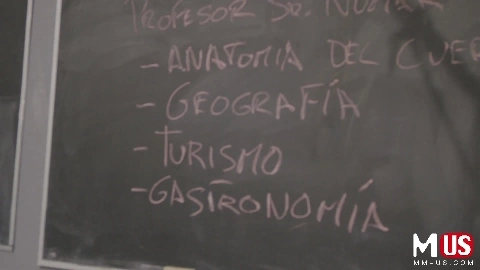 PROFESOR SR.
- ANATOMIA DEL CUER
- GEOGRAFÍA
- TURISMO
- GASTRONOMÍA
M US
MM-US.COM